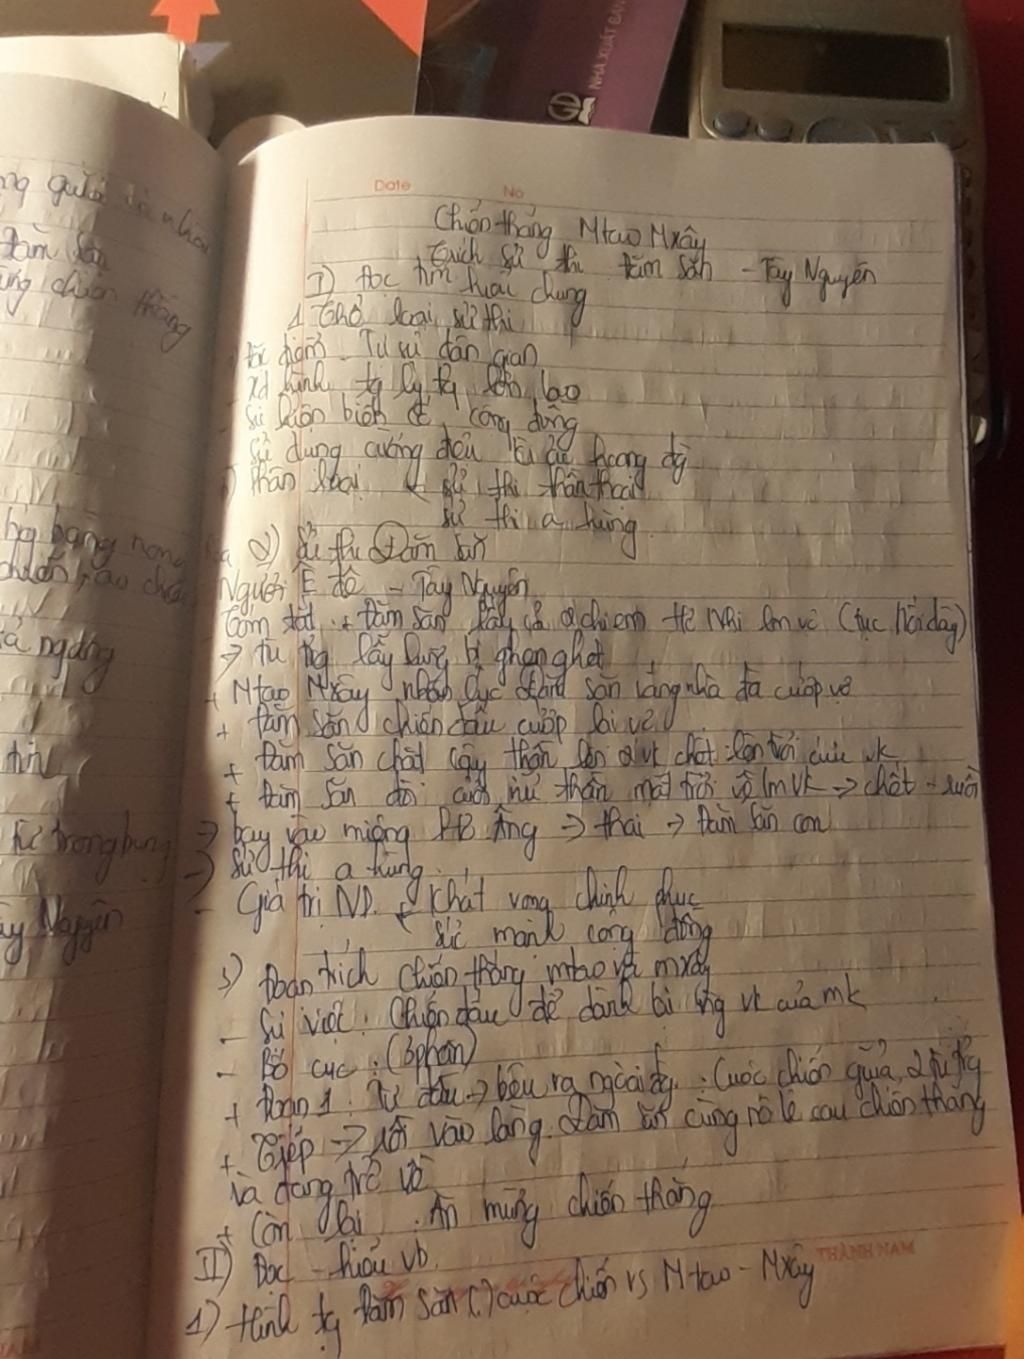 NHÀ XUẤT BẢN
Date No
Chiến thắng Mtao Mxây
Trích sử thi Đăm Săn - Tây Nguyên
I) Đọc tìm hiểu chung
1 Thể loại sử thi
Đặc điểm - Tự sự dân gian
- XD hình tg kỳ vĩ lớn lao
sự kiện biến cố cộng đồng
Sử dụng cường điệu
Phân loại sử thi thần thoại
sử thi a hùng
2) Sử thi Đăm Săn
Người Ê đê - Tây Nguyên
Tóm tắt + Đăm Săn lấy cả 2 chị em Hơ Nhị lm vợ (tục nối dây)
→ tù trg lẫy lừng bị ghen ghét
+ Mtao Mxây nhân lúc Đăm Săn vắng nhà đã cướp vợ
+ Đăm Săn chiến đấu cướp lại vợ
+ Đăm Săn chặt cây thần lên 2 vk chết lên trời cứu vk
+ Đăm Săn đòi cưới nữ thần mặt trời về lm vk → chết -
→ bay vào miệng Âng → thai → Đăm Săn con
→ Sử thi a hùng
- Giá trị ND. Khát vọng chinh phục
sức mạnh cộng đồng
3) Đoạn trích chiến thắng mtao và mxây
- Sự việc: Chiến đấu để dành lại vk của mk
- Bố cục: (3 phần)
+ Đoạn 1: Từ đầu → bêu ra ngoài đg: Cuộc chiến giữa 2 tù trg
+ Tiếp → rồi vào làng: Đăm Săn cùng nô lệ sau chiến thắng
và đang trở về
+ Còn lại: Ăn mừng chiến thắng
II) Đọc - hiểu vb
THÀNH NAM
1) Hình tg Đăm Săn (.) cuộc chiến vs Mtao - Mxây
giữa
Đăm Săn
chiến thắng
Từ trong bụng
Tây Nguyên